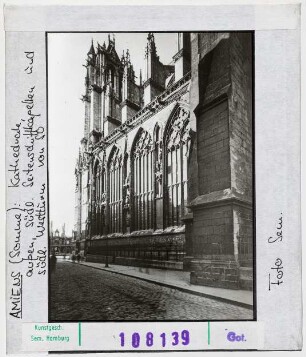 AMIENS (Somme): Kathedrale
außen, südl. Seitenschiffkapellen und
südl. Westturm von SO
Foto Sem.
Kunstgesch.
Sem. Hamburg
108139
Got.